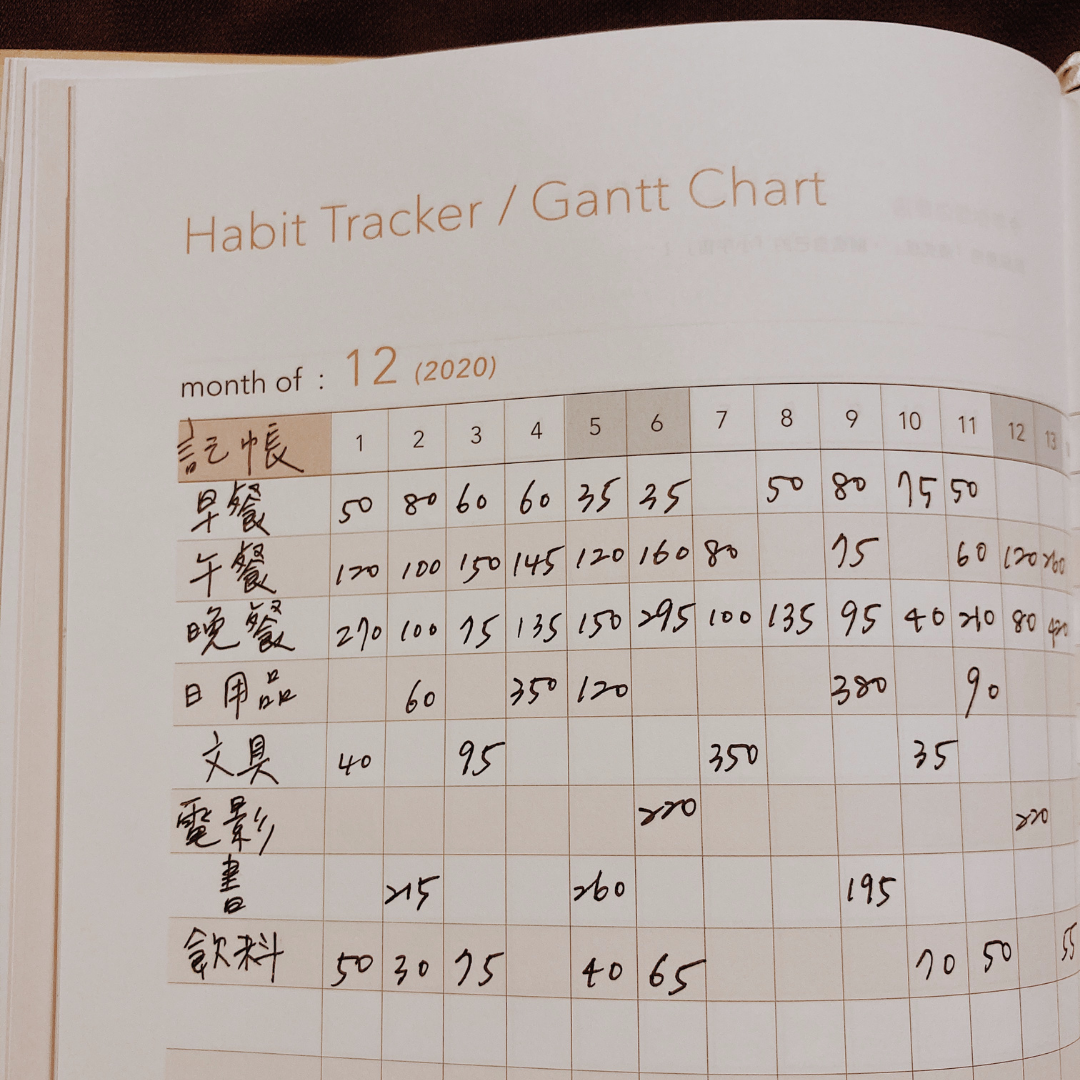 Habit Tracker / Gantt Chart
month of : 12 (2020)
記帳 1 2 3 4 5 6 7 8 9 10 11 12 13
早餐 50 80 60 60 35 35 50 80 75 50
午餐 120 100 150 145 120 160 80 75 60 120 260
晚餐 270 100 75 135 150 295 100 135 95 40 210 80 420
日用品 60 350 120 380 90
文具 40 95 350 35
電影 220 220
書 215 260 195
飲料 50 30 75 40 65 70 50 55